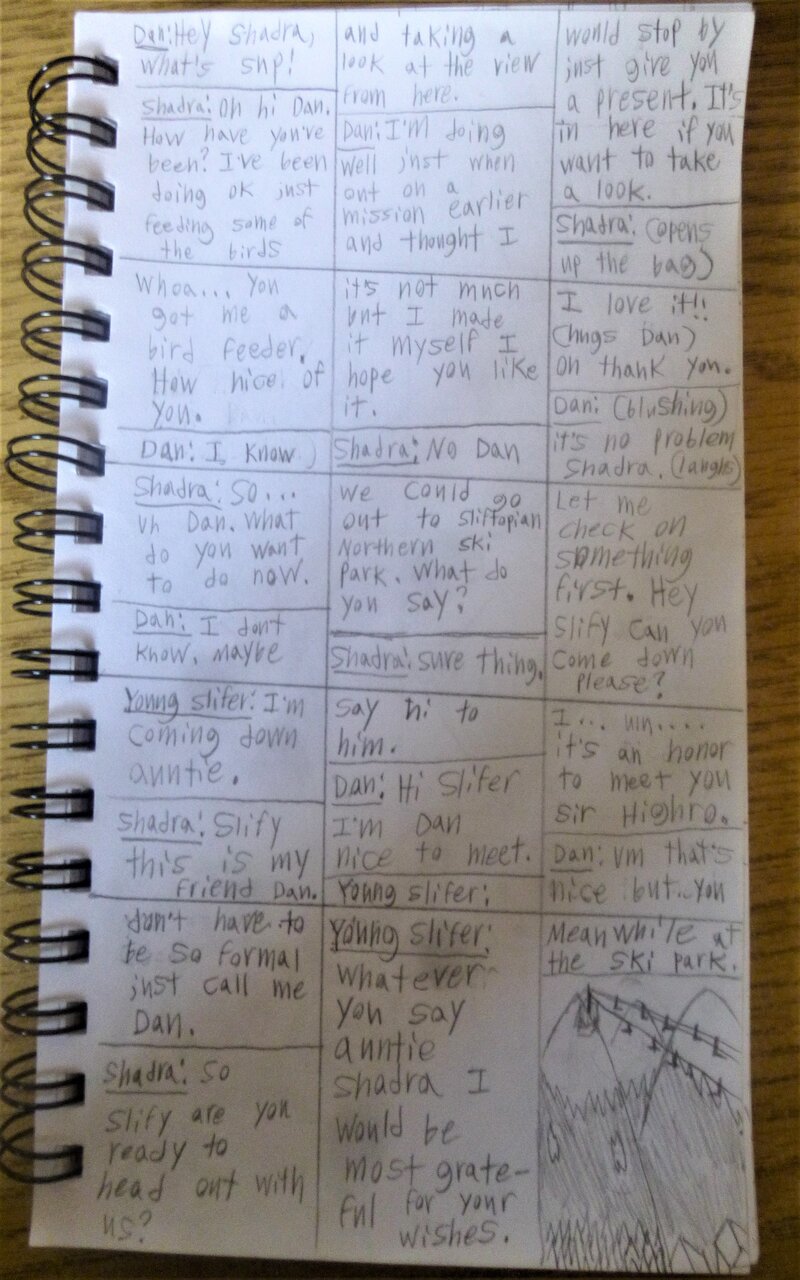 Dan: Hey Shadra,
what's sup!
Shadra: Oh hi Dan.
How have you've
been? I've been
doing ok just
feeding some of
the birds
and taking a
look at the view
from here.
Dan: I'm doing
well just when
out on a
mission earlier
and thought I
would stop by
just give you
a present. It's
in here if you
want to take
a look.
Shadra: (opens
up the bag)
Whoa... you
got me a
bird feeder.
How nice of
you.
Dan: I know
it's not much
but I made
it myself I
hope you like
it.
Shadra: No Dan
I love it!!
(hugs Dan)
oh thank you.
Dan: (blushing)
it's no problem
Shadra. (laughs)
Shadra: So...
uh Dan. What
do you want
to do now.
Dan: I don't
know, maybe
we could go
out to Sliftopian
Northern Ski
Park. What do
you say?
Shadra: sure thing.
Let me
check on
something
first. Hey
Slify can you
come down
please?
Young Slifer: I'm
coming down
auntie.
Shadra: Slify
this is my
friend Dan.
say hi to
him.
Dan: Hi Slifer
I'm Dan
nice to meet.
Young Slifer:
I... um....
it's an honor
to meet you
sir Highro.
Dan: Um that's
nice but.. you
don't have to
be so formal
just call me
Dan.
Shadra: So
Slify are you
ready to
head out with
us?
Young Slifer:
Whatever
you say
anntie
Shadra I
would be
most grate-
ful for your
wishes.
Meanwhile at
the ski park.